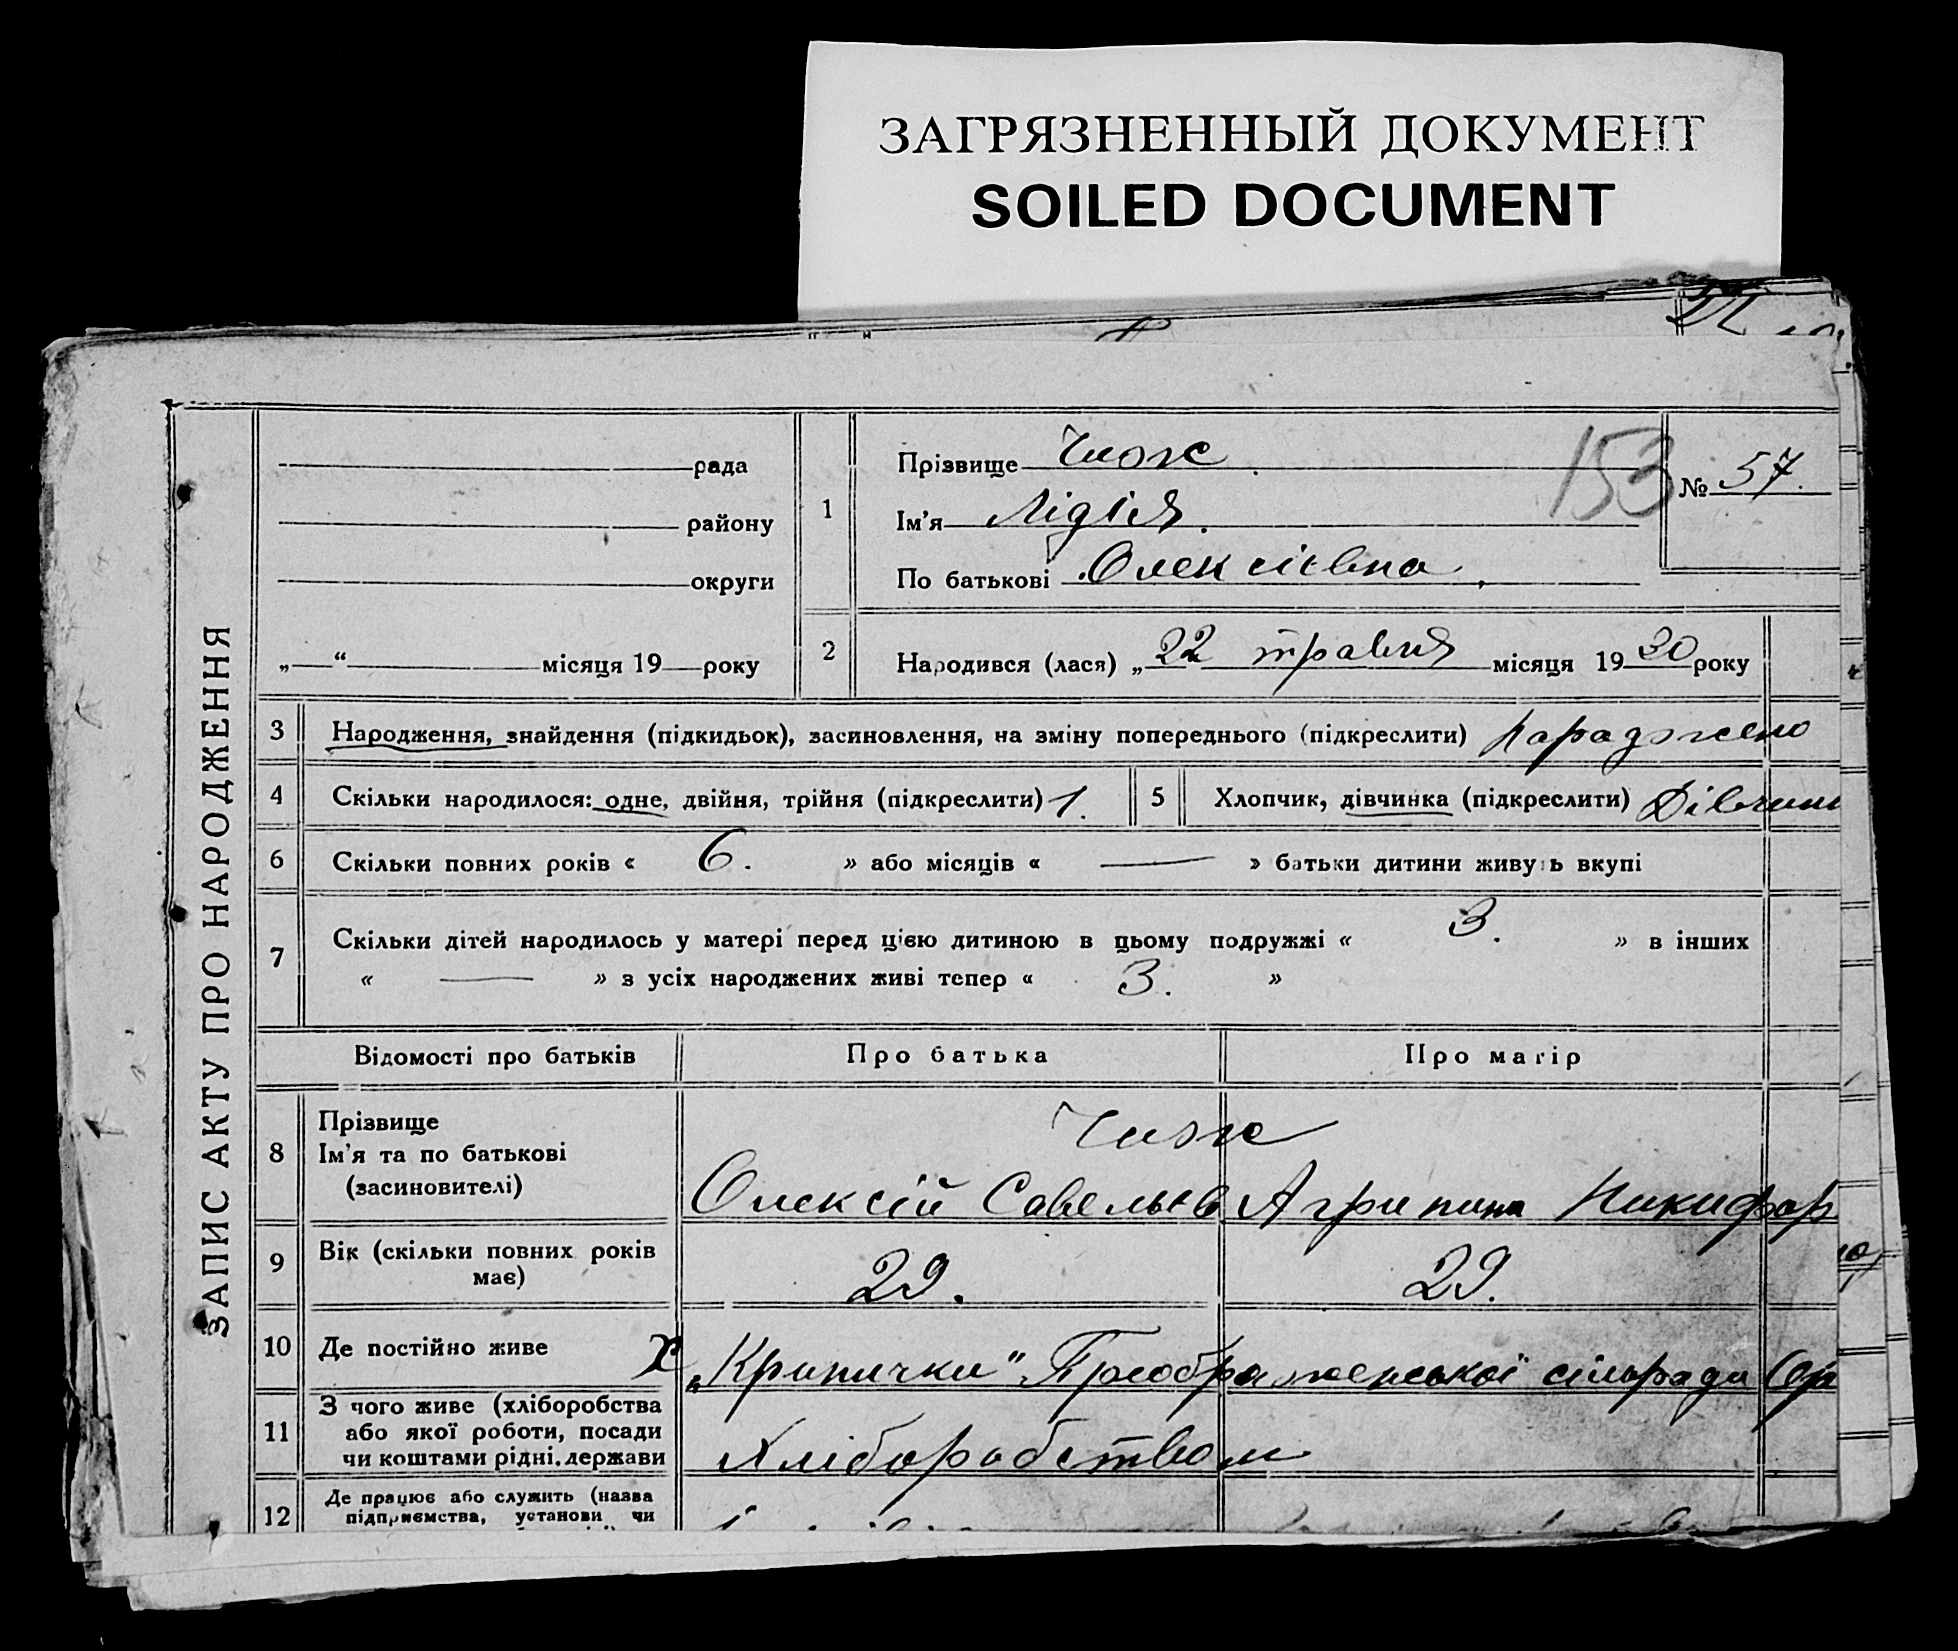 ЗАГРЯЗНЕННЫЙ ДОКУМЕНТ
SOILED DOCUMENT
ЗАПИС АКТУ ПРО НАРОДЖЕННЯ
рада
району
округи
„ “ місяця 19 року
1
Прізвище Чиж
Ім’я Лідія.
По батькові Олексієвна
153
№ 57.
2
Народився (лася) „ 22 травня місяця 19 30 року
3 Народження, знайдення (підкидьок), засиновлення, на зміну попереднього (підкреслити) народжено
4 Скільки народилося: одне, двійня, трійня (підкреслити) 1.
5 Хлопчик, дівчинка (підкреслити) Дівчин
6 Скільки повних років « 6. » або місяців « — » батьки дитини живуть вкупі
7 Скільки дітей народилось у матері перед цією дитиною в цьому подружжі « 3. » в інших
« — » з усіх народжених живі тепер « 3. »
Відомості про батьків Про батька Про матір
8 Прізвище
Ім’я та по батькові
(засиновителі)
Чиж
Олексій Савельєв Агрипина Никифор
9 Вік (скільки повних років
має)
29. 29.
10 Де постійно живе х „Кринички“ Преображенської сільради
11 З чого живе (хліборобства
або якої роботи, посади
чи коштами рідні, держави
Хліборобством
12 Де працює або служить (назва
підприємства, установи чи